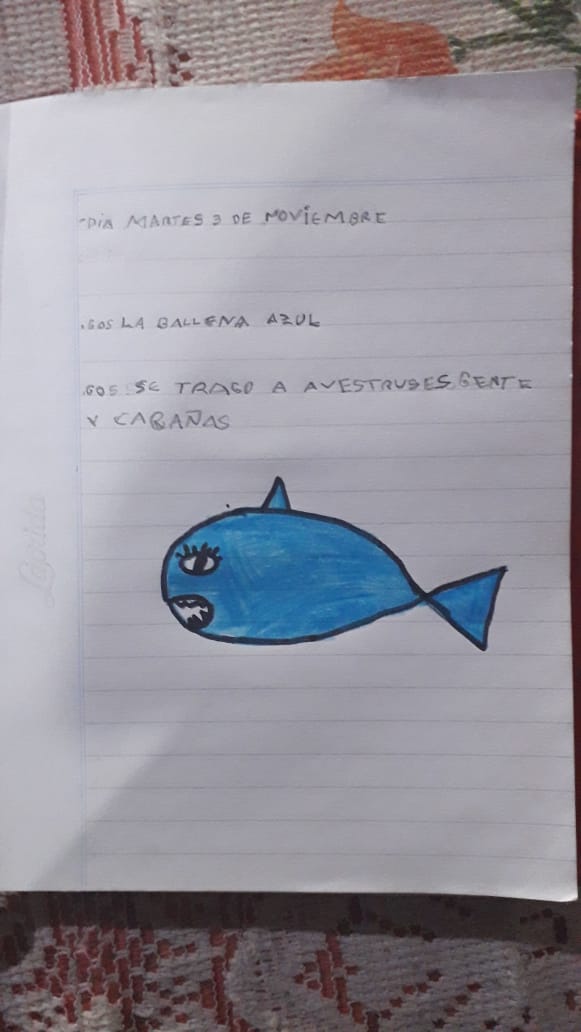 -DÍA MARTES 3 DE NOVIEMBRE
.GOS LA BALLENA AZUL
.GOS SE TRAGO A AVESTRUSES GENTE
Y CABAÑAS
Laprida